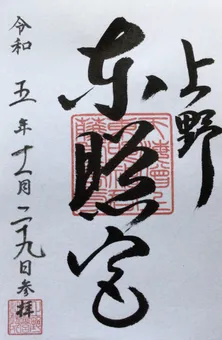 上野
東照宮
令和五年十一月二十九日参拝